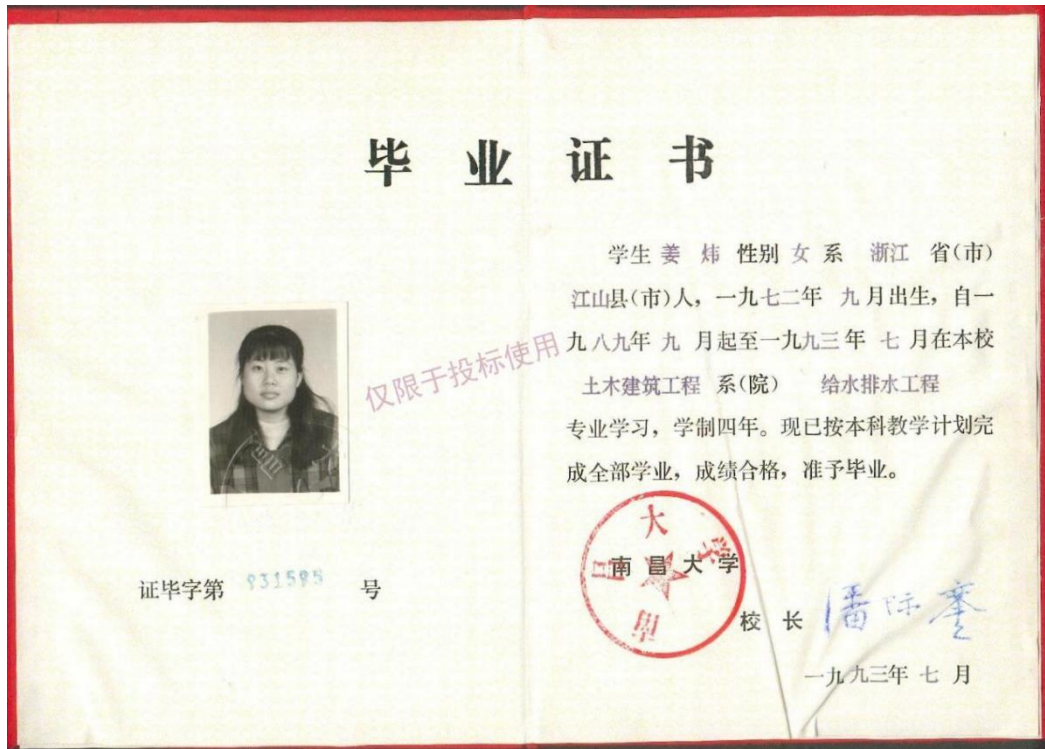 毕业证书
学生 姜 炜 性别 女 系 浙江 省(市)
江山县(市)人，一九七二年 九月出生，自一
九八九年 九 月起至一九九三年 七 月在本校
土木建筑工程 系(院) 给水排水工程
专业学习，学制四年。现已按本科教学计划完
成全部学业，成绩合格，准予毕业。
仅限于投标使用
南昌大学
南昌大学
校 长 潘际銮
一九九三年 七 月
证毕字第 931595 号